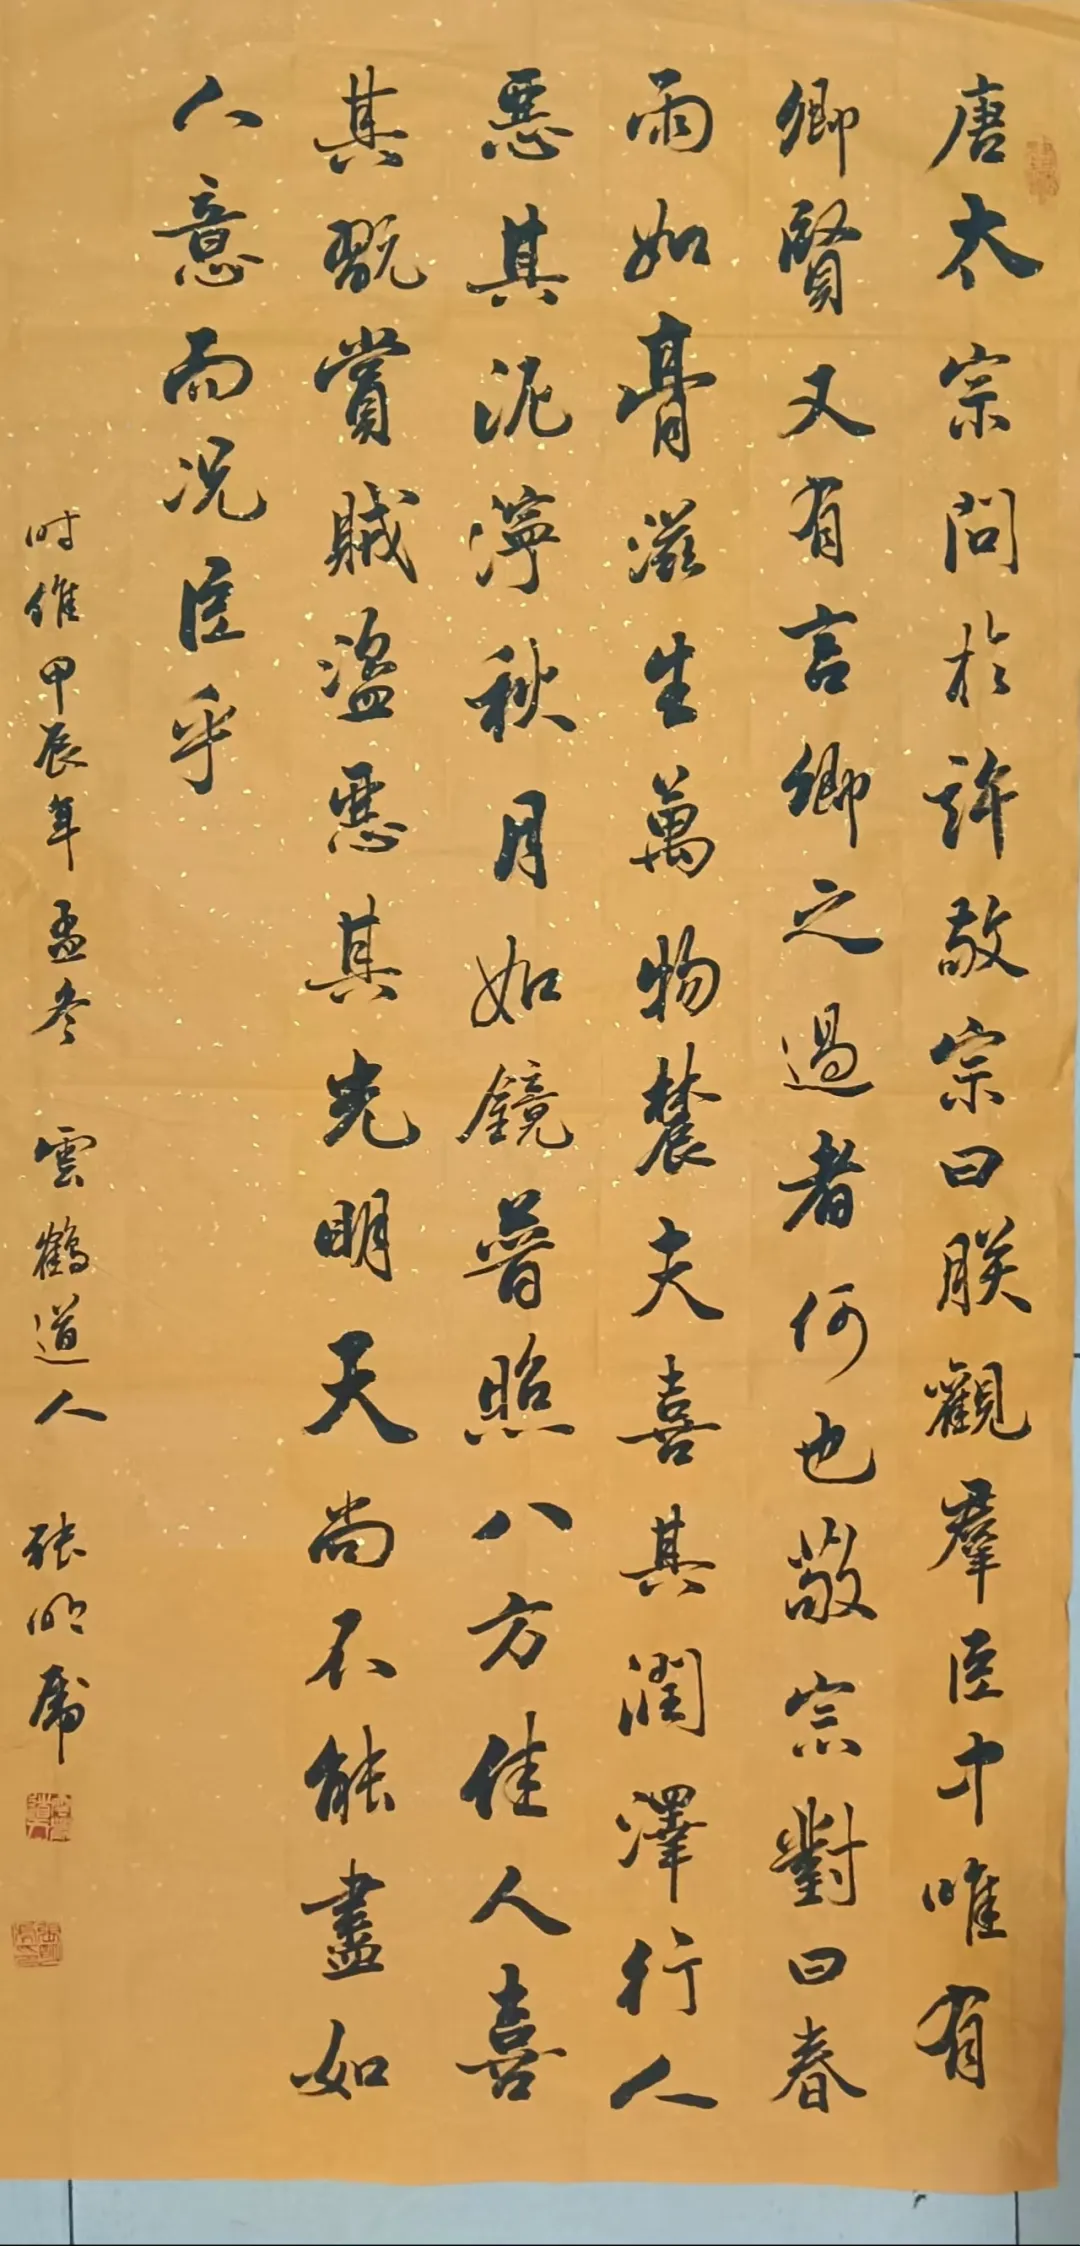 唐太宗問於許敬宗曰朕觀群臣中唯有
卿賢又有言卿之過者何也敬宗對曰春
雨如膏滋生萬物農夫喜其潤澤行人
惡其泥濘秋月如鏡普照八方佳人喜
其翫賞賊盜惡其光明天尚不能盡如
人意而况臣乎
时维甲辰年孟冬 雲鶴道人 张明